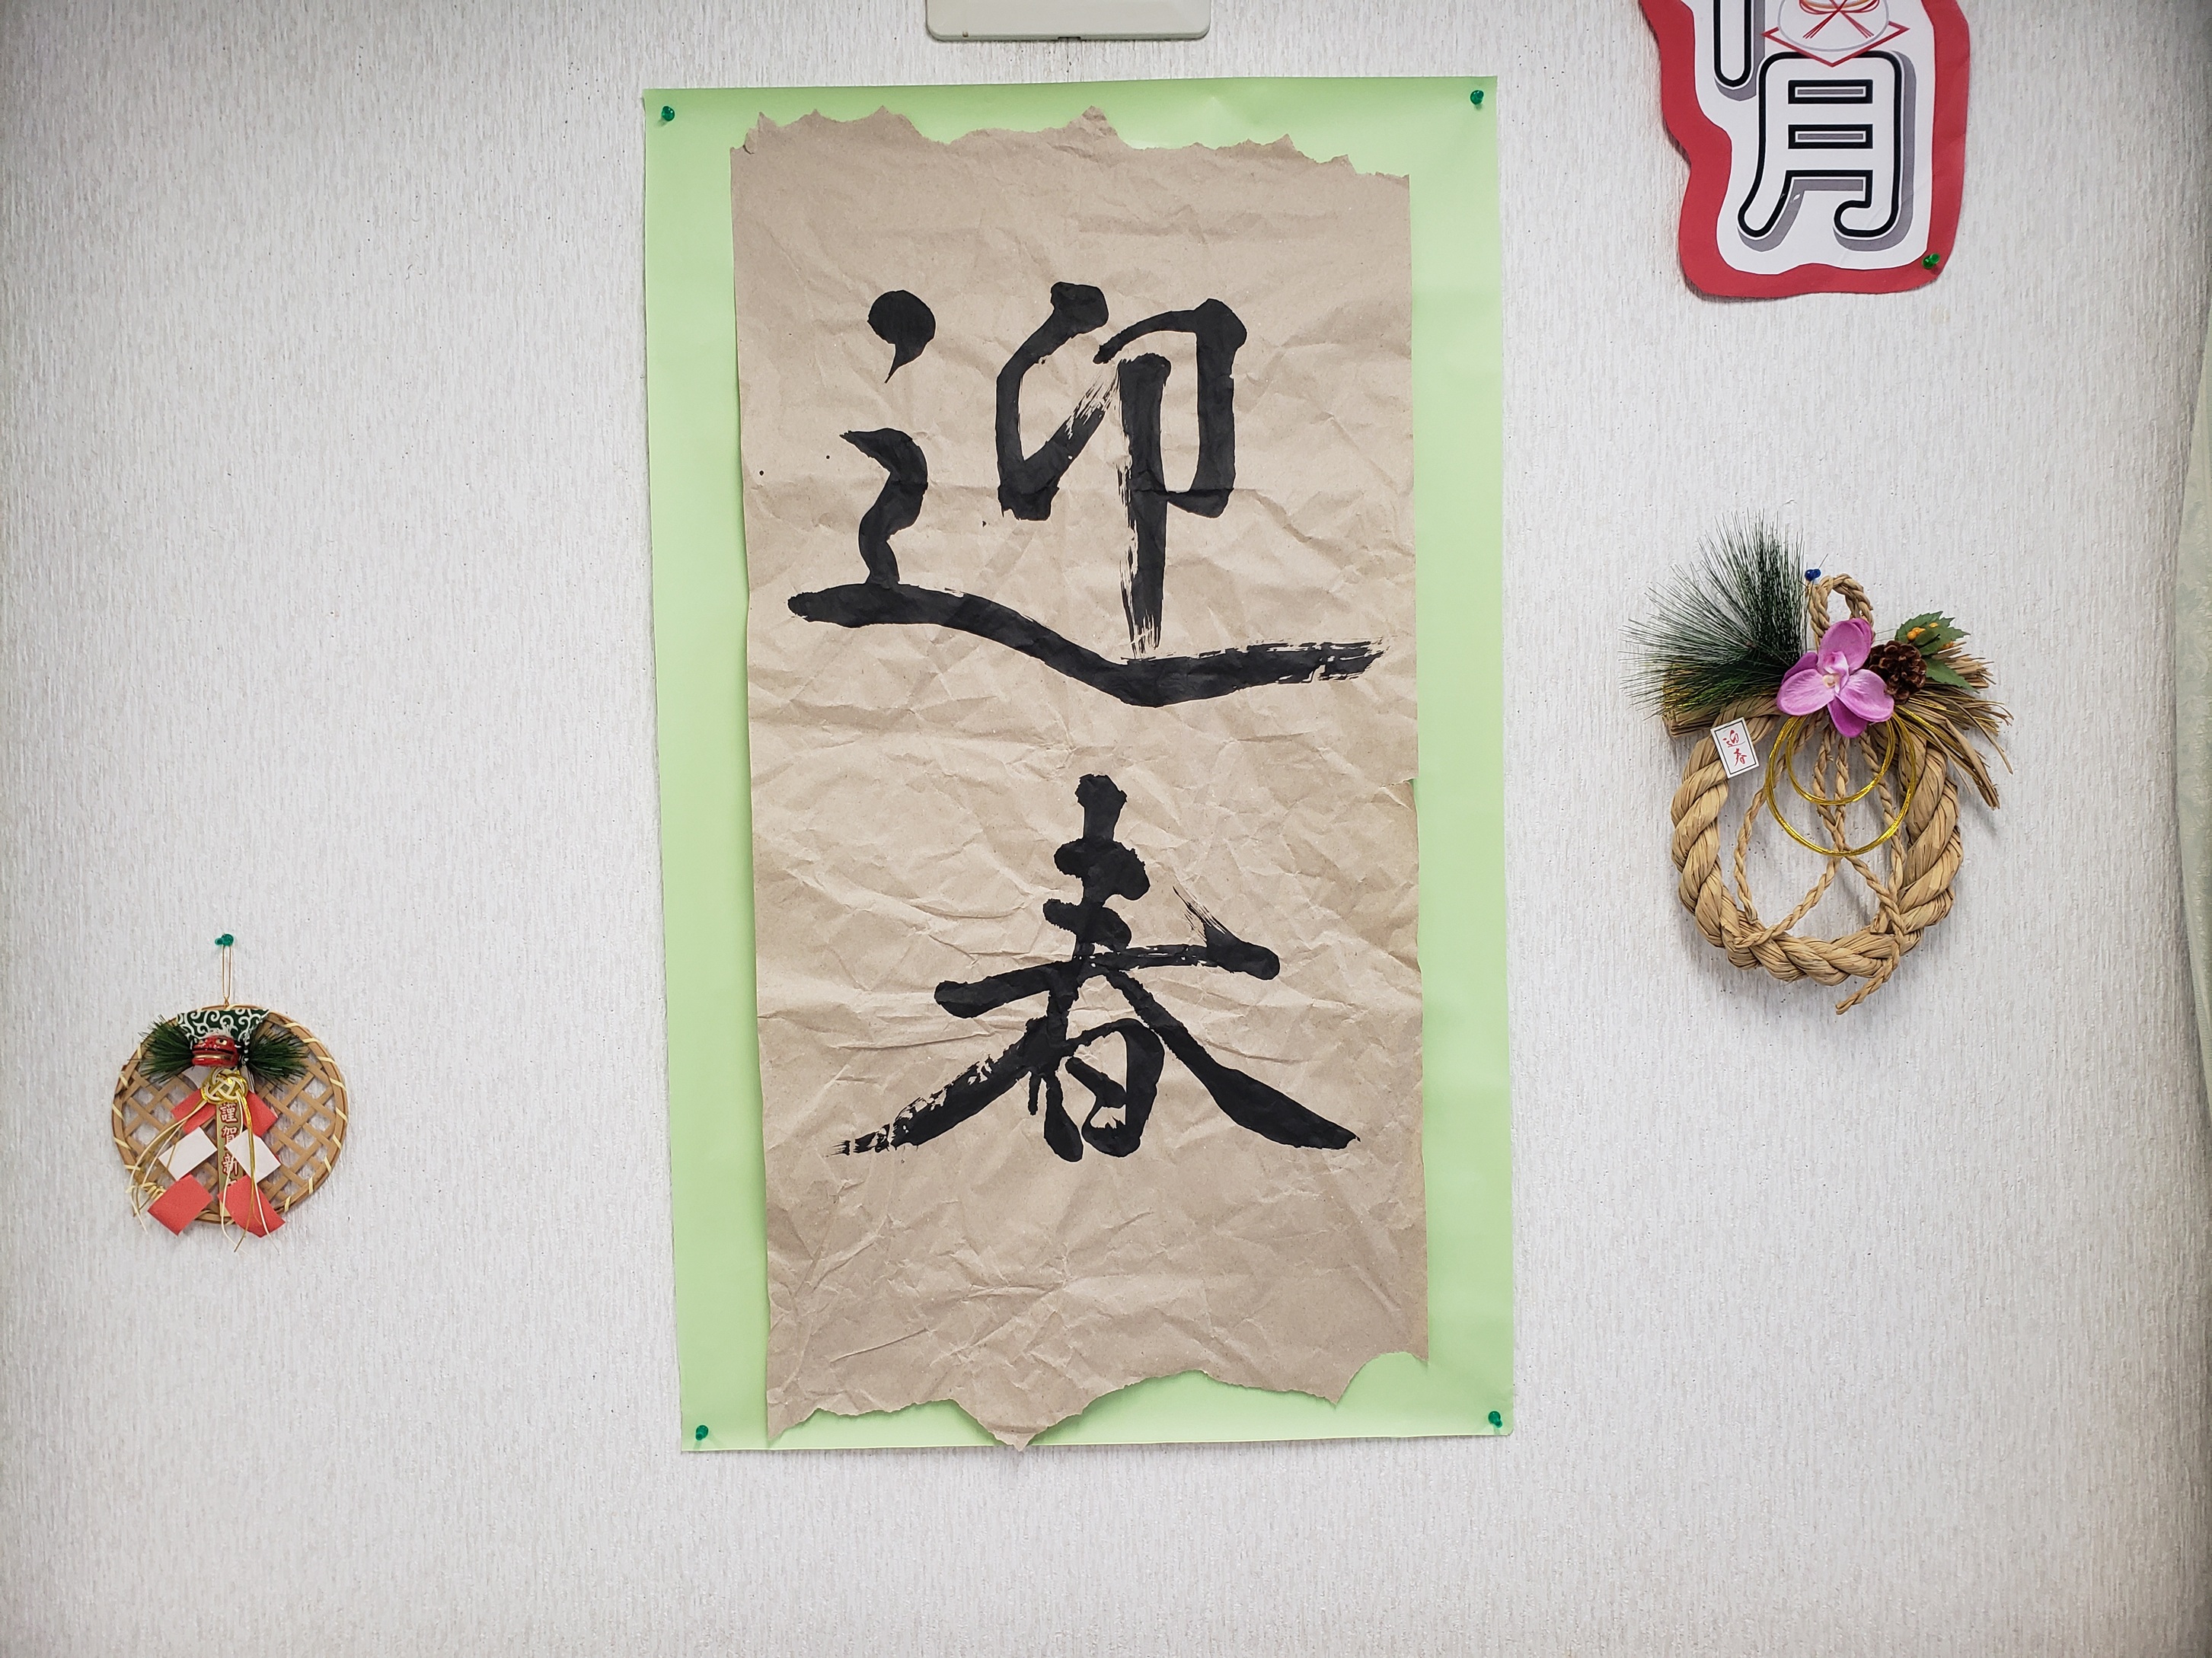 迎春
月
迎春
謹賀新